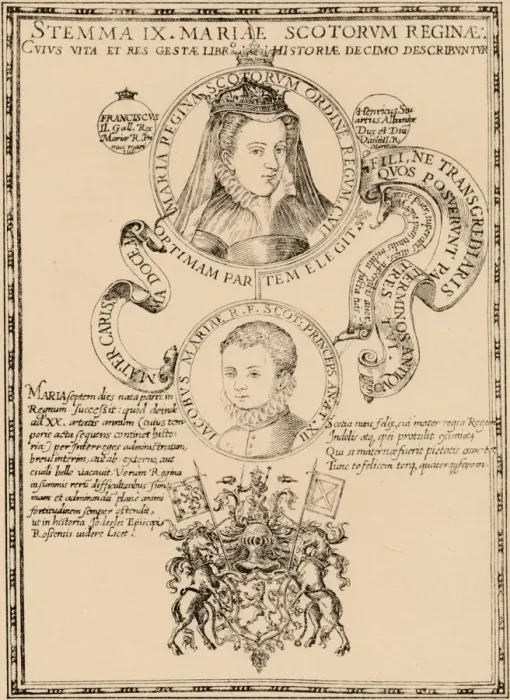 STEMMA IX. MARIAE SCOTORVM REGINÆ.
CVIVS VITA ET RES GESTÆ LIBRO HISTORIÆ DECIMO DESCRIBVNTVR
FRANCISCVS
II. Gall. Rex
Mariæ R. Pri
mus mari
tus
Henricus Stu
artus
Dux et
MARIA REGINA SCOTORVM ORDINE REGVM CVI
OPTIMAM PARTEM ELEGIT
FILI, NE TRANSGREDIARIS
TERMINOS ANTIQVOS
QVOS POSVERVNT PATRES TVI
MATER CARISSIMA DOCE
IACOBVS MARIAE R. F. SCOT. PRINCEPS AN. ÆT. XII
MARIA septem dies nata patri in
Regnum successit: quod deinde
ad XX. ætatis annum (cuius tem
poris acta sequens continet histo
ria) per Interreges administratum,
brevi interim, aut ab externo, aut
civili bello vacavit. Verum Regina
in summis rerum difficultatibus sum
mam et admirandā plane animi
fortitudinem semper ostendit,
ut in historia Io. Leslei Episcopi
Rossensis videre licet.
Scotia nunc felix, cui mater regia Regem
Indolis atq, spei protulit eximiæ,
Qui si maternæ fuerit pietatis
Tunc te felicem terq, quaterq,